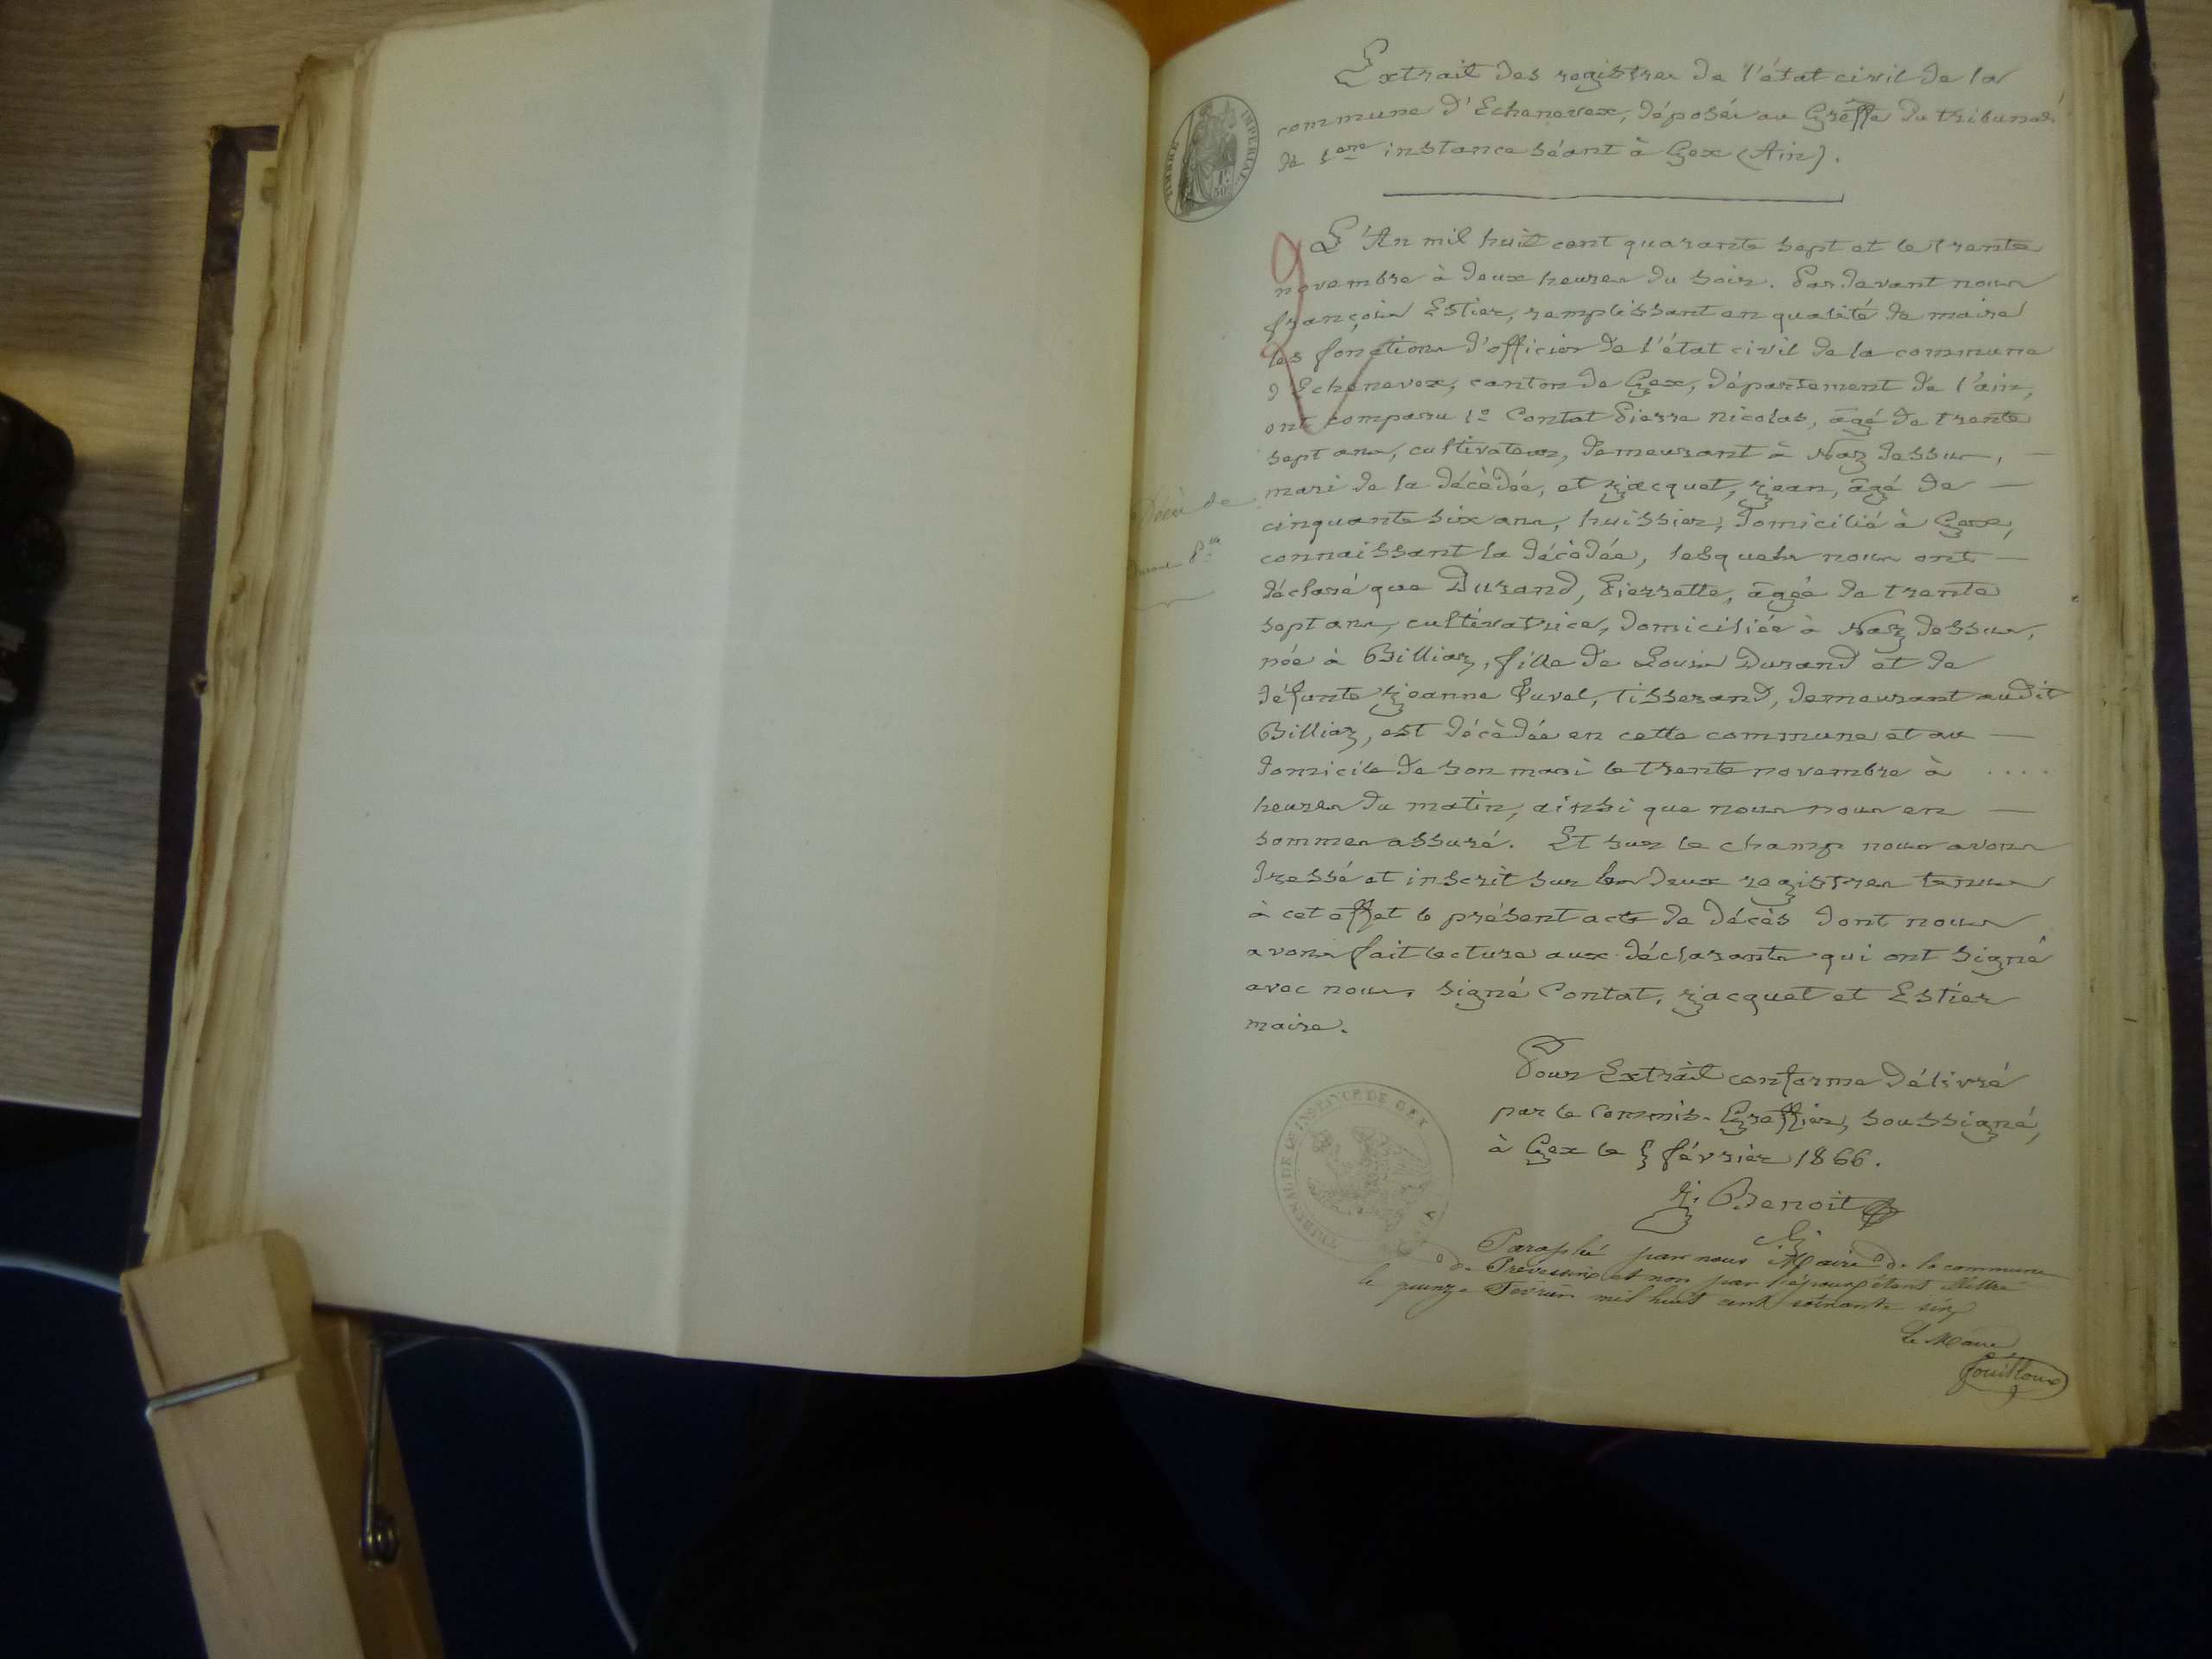 Extrait des registres de l'état civil de la
commune d'Echenevex, déposés au Greffe du tribunal
de 1ere instance séant à Gex (Ain).
TIMBRE IMPERIAL
1F.
50C
L'An mil huit cent quarante sept et le trente
novembre à deux heures du soir. Par devant nous
françois Estier, remplissant en qualité de maire
les fonctions d'officier de l'état civil de la commune
d'Echenevex, canton de Gex, département de l'ain,
ont comparu 1º Contat Pierre Nicolas, âgé de trente
sept ans, cultivateur, demeurant à Naz dessus, —
mari de la décèdée, et Jacquet, Jean, âgé de —
cinquante six ans, huissier, domicilié à Gex,
connaissant la décèdée, lesquels nous ont —
déclaré que Durand, Pierrette, âgée de trente
sept ans, cultivatrice, domiciliée à Naz dessus,
née à Billiaz, fille de Louis Durand et de
défunte Jeanne Tuvel, tisserand, demeurant audit
Billiaz, est décèdée en cette commune et au —
domicile de son mari le trente novembre à ....
heures du matin, ainsi que nous nous en —
sommes assuré. Et sur le champ nous avons
dressé et inscrit sur les deux registres tenus
à cet effet le présent acte de décès dont nous
avons fait lecture aux déclarants qui ont signé
avec nous. signé Contat, Jacquet et Estier
maire.
Décès de
Durand Ptte
Pour Extrait conforme délivré
par le Commis-Greffier, soussigné,
à Gex le 5 février 1866.
J. Benoit
TRIBUNAL DE 1RE INSTANCE DE GEX
Paraphé par nous Maire de la commune
de Prévessins et non par l'époux étant illettré
le quinze Février mil huit cent soixante six
Le Maire
Fouilloux